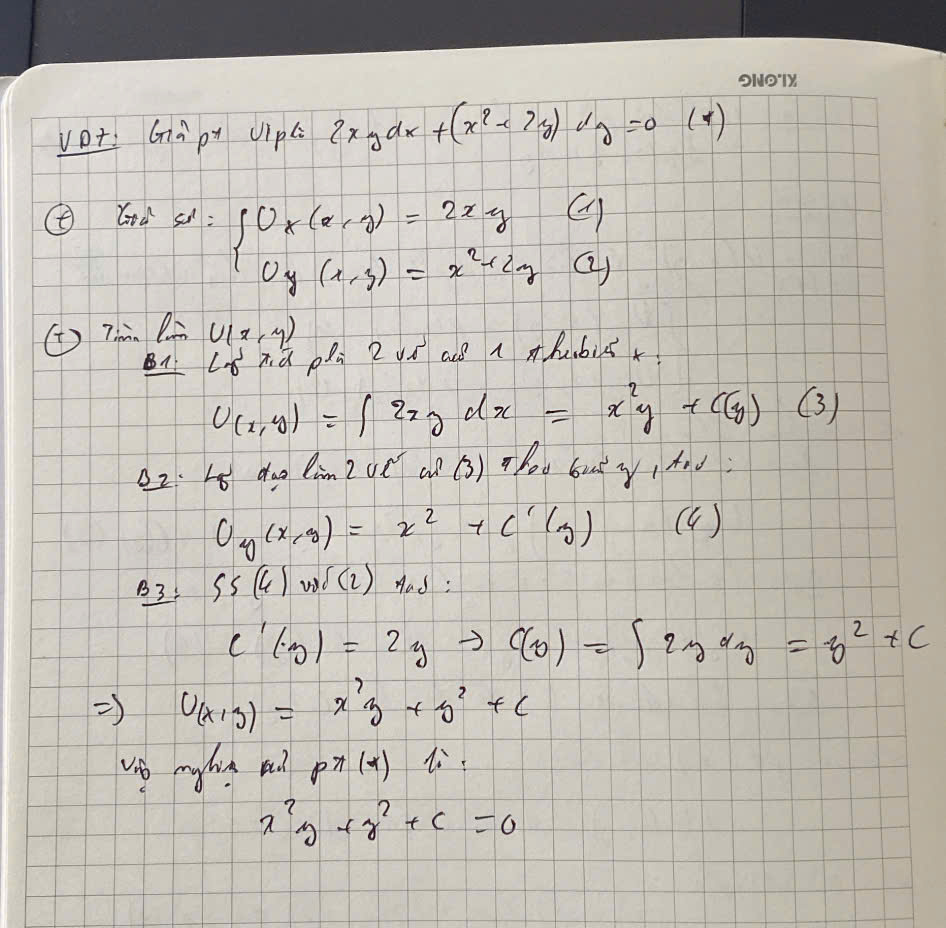 KLONG
VD7: Giải pt vi phân 2xydx + (x² + 2y) dy = 0 (*)
⊕ Giả sử: { Ux(x,y) = 2xy (1)
Uy(x,y) = x²+2y (2)
⊕ Tìm hàm U(x,y)
B1: Lấy phân 2 vế của 1 theo biến x:
U(x,y) = ∫ 2xy dx = x²y + C(y) (3)
B2: Lấy đạo hàm 2 vế của (3) theo biến y, :
Uy(x,y) = x² + C'(y) (4)
B3: SS (4) với (2) :
C'(y) = 2y → C(y) = ∫ 2y dy = y² + C
=> U(x,y) = x²y + y² + C
Vậy nghiệm của pt (*) là:
x²y + y² + C = 0